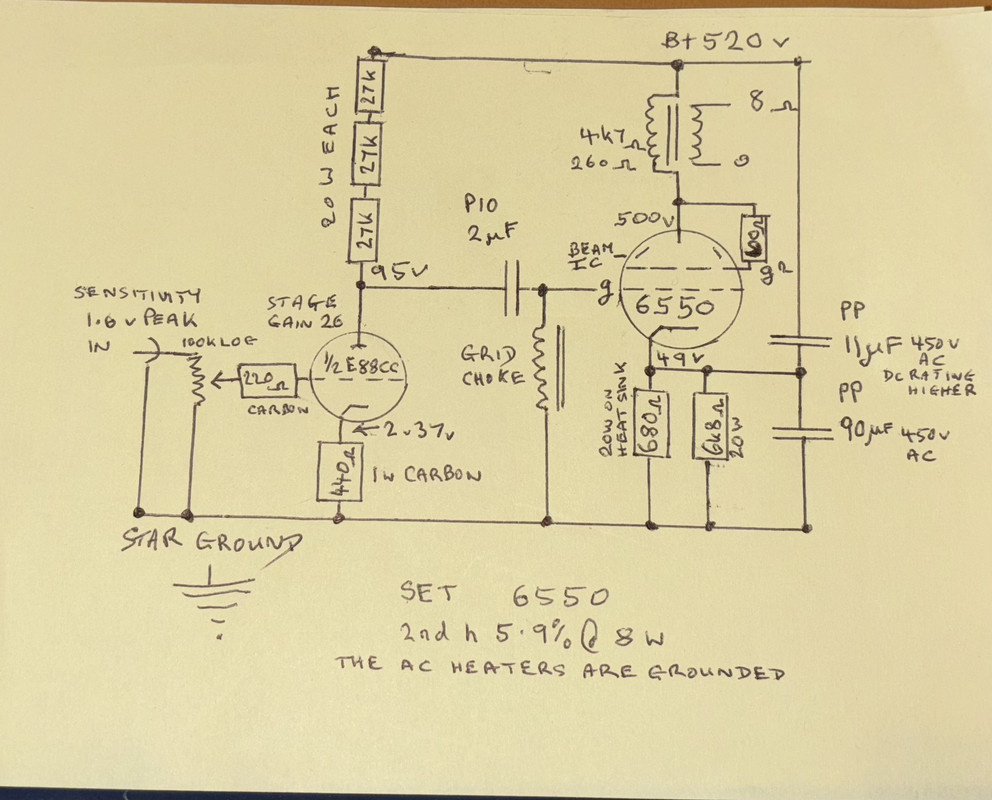 B+ 520 v
27K
27K
27K
20 W EACH
8 Ω
4.k7 Ω
260 Ω
0
PIO
2 µF
500v
600Ω
g2
BEAM
IC
g
6550
95v
SENSITIVITY
1.6 v PEAK
IN
100K LOG
STAGE
GAIN 26
½ E88CC
220Ω
CARBON
GRID
CHOKE
49v
PP
11µF 450V
AC
DC RATING
HIGHER
PP
90µF 450V
AC
20W ON
HEAT SINK
680Ω
6k8Ω
20W
2.37v
440Ω
1W CARBON
STAR GROUND
SET 6550
2nd h 5.9% @ 8 W
THE AC HEATERS ARE GROUNDED